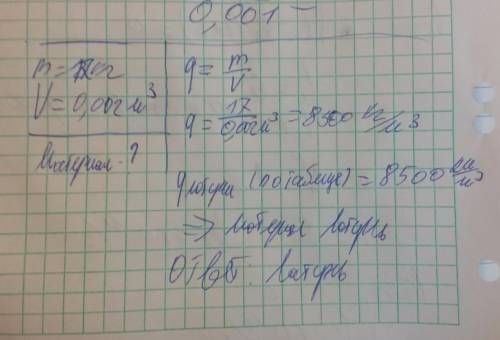 0,001
m = 17кг
V = 0,002 м³
Материал - ?
q = m/V
q = 17/0,002 м³ = 8500 кг/м³
q латуни (по таблице) = 8500 кг/м³
⇒ материал латунь
Ответ: латунь